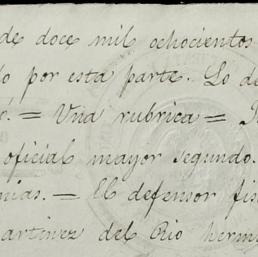 de doce mil ochocientos
o por esta parte. Lo de
. = Una rubrica =
oficial mayor segundo.
nias. = El defensor fis
artinez del Rio herm